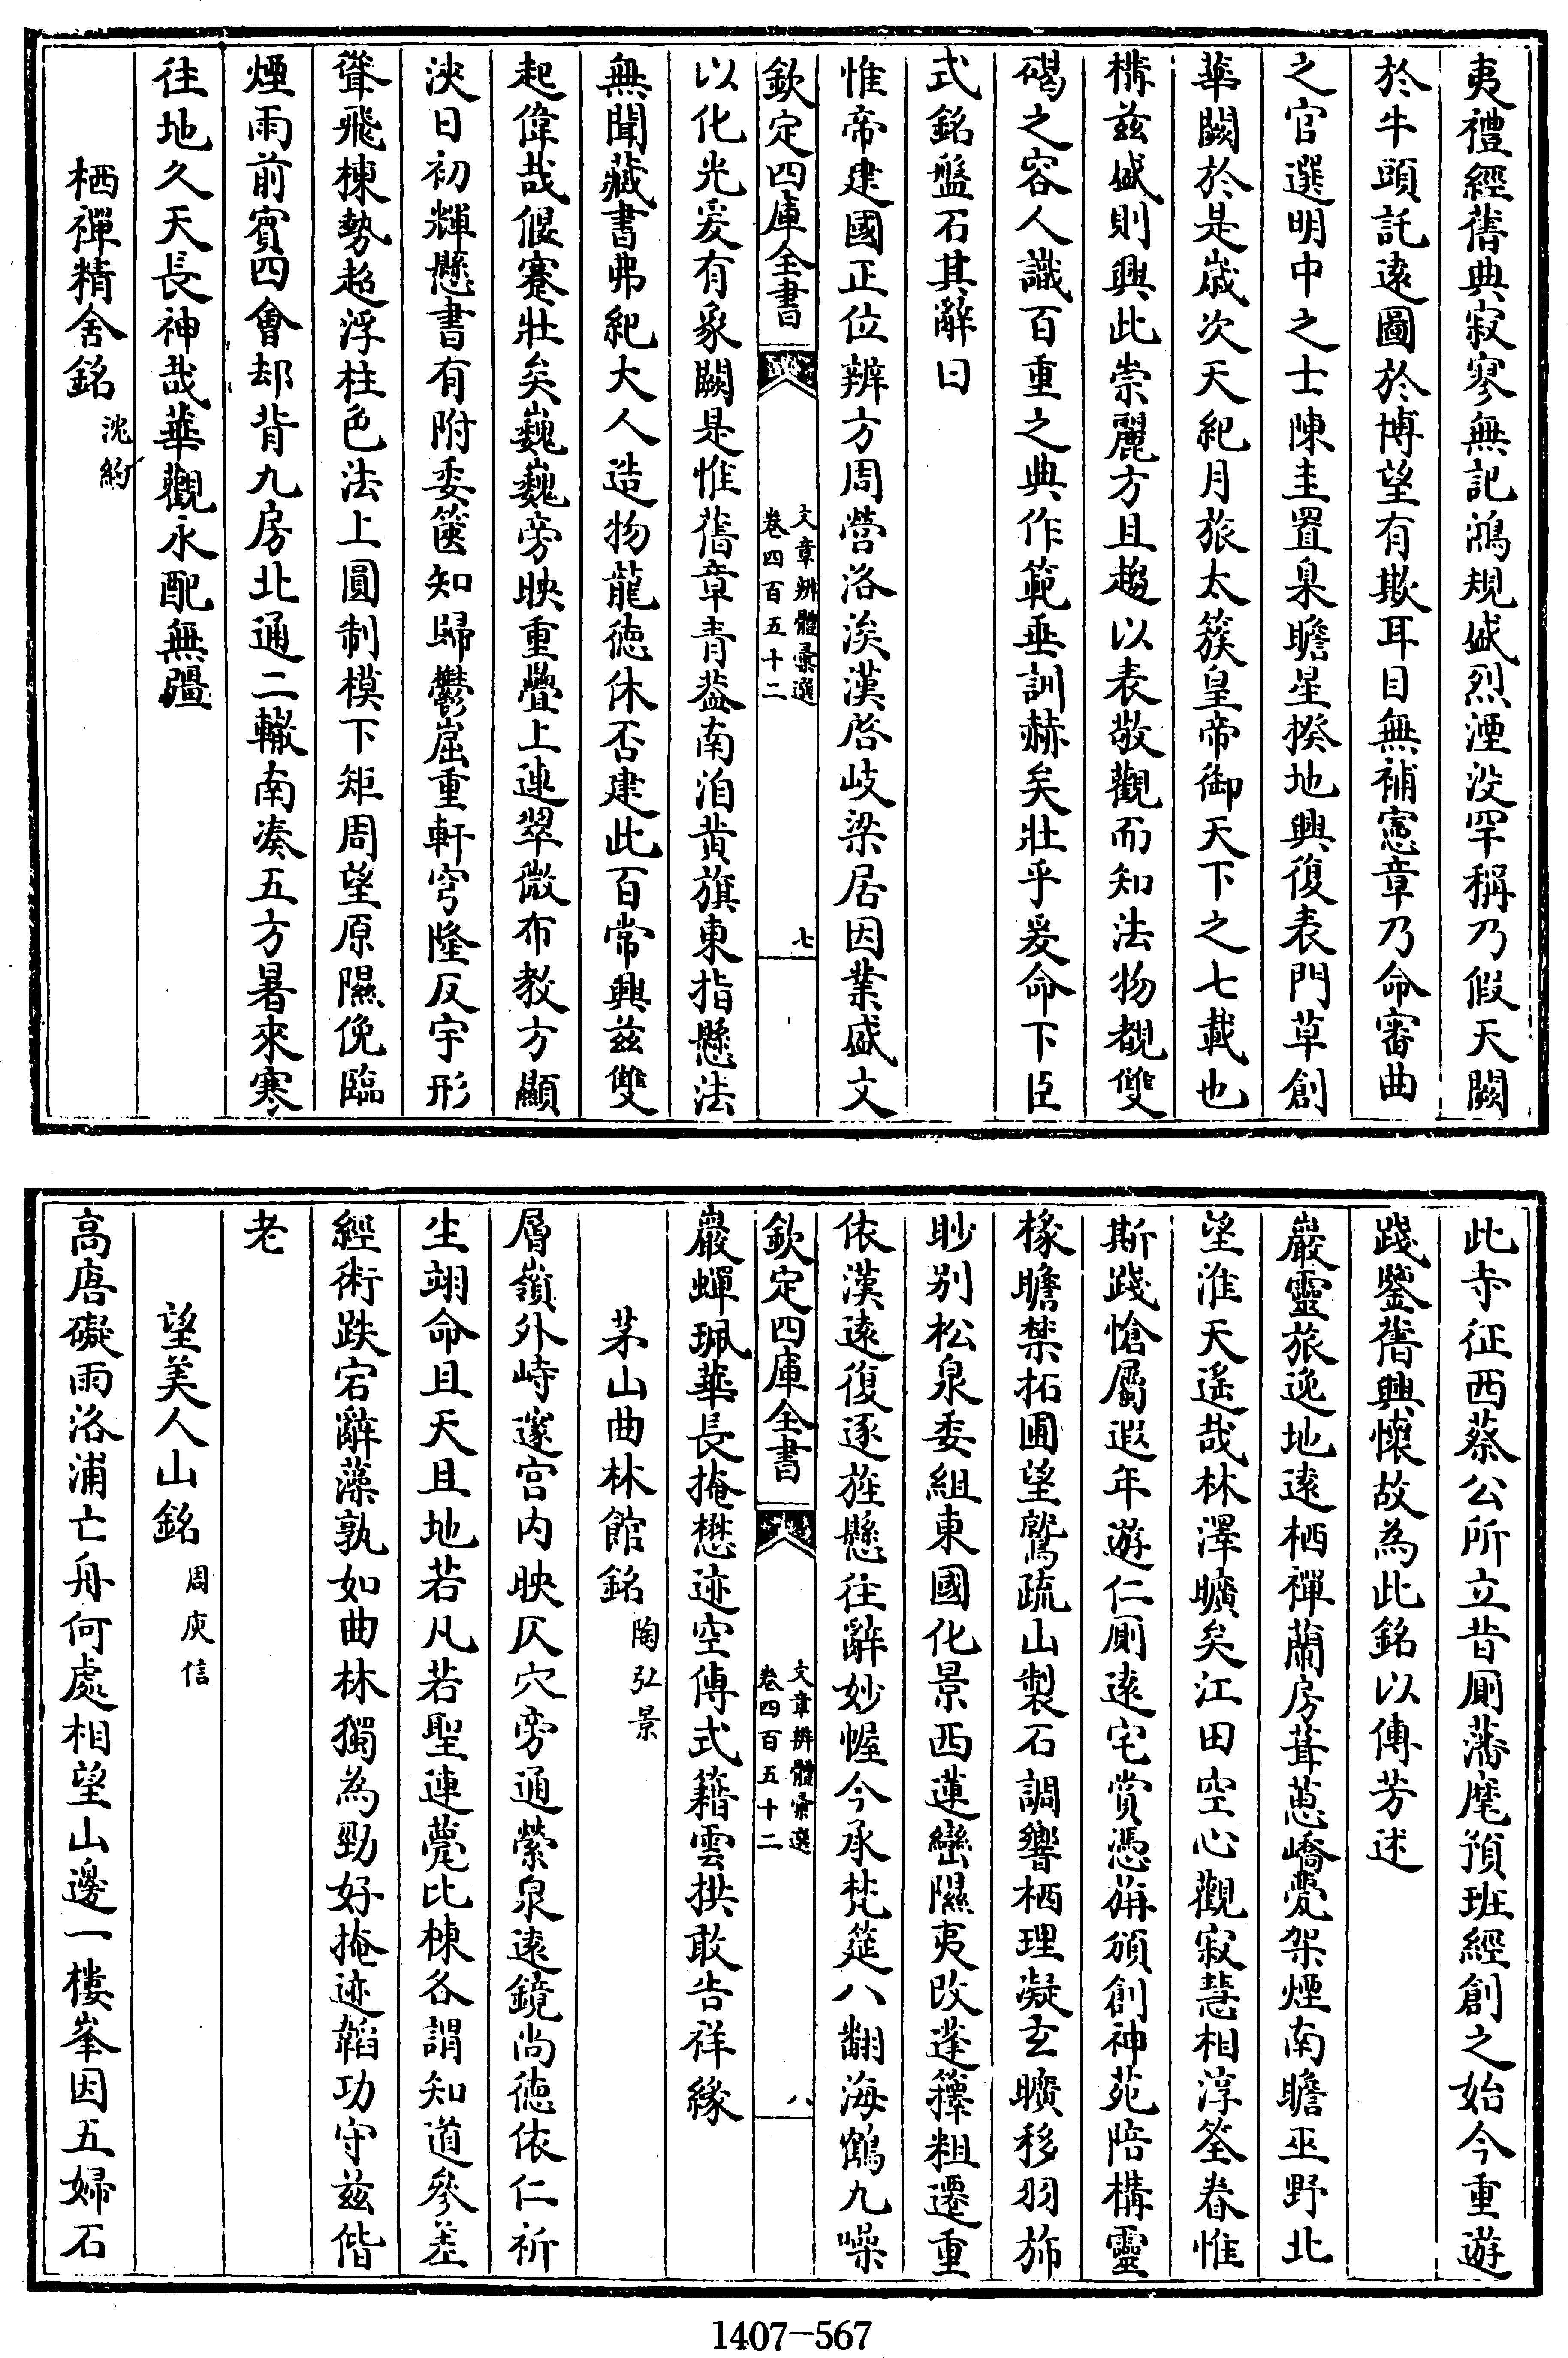 夷禮經舊典寂寥無記鴻規盛烈湮没罕稱乃假天闕
於牛頭託逺圖於博望有欺耳目無補憲章乃命審曲
之官選明中之士陳圭置臬瞻星揆地興復表門草創
華闕於是歲次天紀月旅太簇皇帝御天下之七載也
構兹盛則興此崇麗方且趨以表敬觀而知法物覩雙
碣之容人識百重之典作範垂訓赫矣壯乎爰命下臣
式銘盤石其辭曰
惟帝建國正位辨方周營洛涘漢啓岐梁居因業盛文
欽定四庫全書
文章辨體彙選
卷四百五十二
七
以化光爰有象闕是惟舊章青蓋南洎黄旗東指懸法
無聞藏書弗紀大人造物龍徳休否建此百常興兹雙
起偉哉偃蹇壯矣巍巍旁映重疊上連翠微布教方顯
浹日初輝懸書有附委篋知歸鬱崫重軒穹隆反宇形
聳飛棟勢超浮柱色法上圓制模下矩周望原隰俛臨
煙雨前賓四會却背九房北通二轍南凑五方暑來寒
往地久天長神哉華觀永配無疆
栖禪精舍銘 沈約
此寺征西蔡公所立昔厠藩麾預班經創之始今重遊
踐鑒舊興懷故為此銘以傳芳述
巖靈旅逸地逺栖禪蘭房葺蕙嶠甍架煙南瞻巫野北
望淮天遥哉林澤曠矣江田空心觀寂慧相淳筌眷惟
斯踐愴屬遐年遊仁厠逺宅賞憑旃頒創神苑陪構靈
椽瞻禁拓圃望鷲疏山製石調響栖理凝玄曠移羽旆
眇别松泉委組東國化景西蓮巒隰夷改蓬籜粗遷重
依漢逺復逐旌懸往辭妙幄今承梵筵八翻海鶴九噪
欽定四庫全書
文章辨體彙選
卷四百五十二
八
巖蟬珮華長掩懋迹空傳式籍雲拱敢告祥緣
茅山曲林館銘 陶弘景
層嶺外峙邃宫内映仄穴旁通縈泉逺鏡尚徳依仁祈
生翊命且天且地若凡若聖連甍比棟各謂知道參差
經術跌宕辭藻孰如曲林獨為勁好掩迹韜功守兹偕
老
望美人山銘 周庾信
高唐礙雨洛浦亡舟何處相望山邊一樓峯因五婦石
1407-567